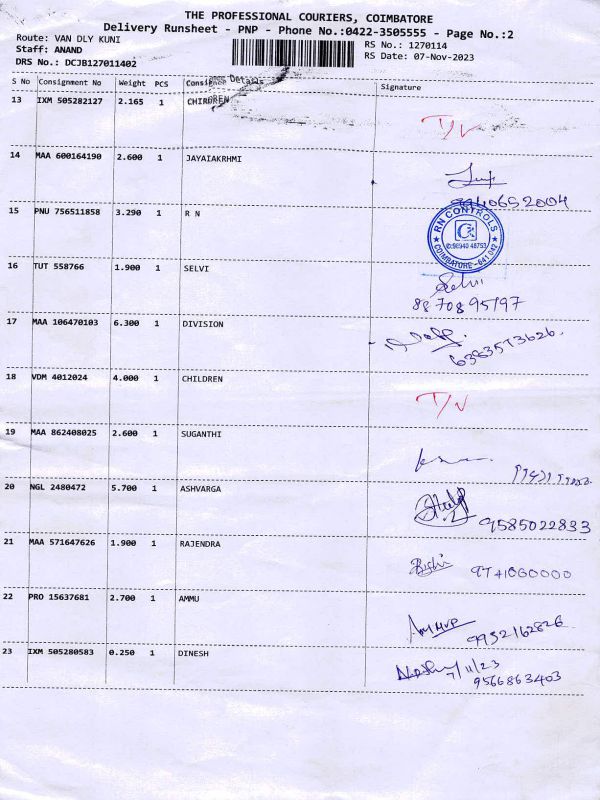 THE PROFESSIONAL COURIERS, COIMBATORE
Delivery Runsheet - PNP - Phone No.:0422-3505555 - Page No.:2
Route: VAN DLY KUNI
RS No.: 1270114
Staff: ANAND
RS Date: 07-Nov-2023
DRS No.: DCJB127011402
S No Consignment No Weight PCS Consignee Details Signature
13 IXM 505282127 2.165 1 CHIRDREN
T/V
14 MAA 600164190 2.600 1 JAYAIAKRHMI
9940652004
15 PNU 756511858 3.290 1 R N
RN CONTROLS
COIMBATORE - 641 042
16 TUT 558766 1.900 1 SELVI
Selvi
8870895197
17 MAA 106470103 6.300 1 DIVISION
6383573626.
18 VDM 4012024 4.000 1 CHILDREN
T/V
19 MAA 862408025 2.600 1 SUGANTHI
20 NGL 2480472 5.700 1 ASHVARGA
9585022833
21 MAA 571647626 1.900 1 RAJENDRA
9741000000
22 PRO 15637681 2.700 1 AMMU
9952162826
23 IXM 505280583 0.250 1 DINESH
7/11/23
9566863403